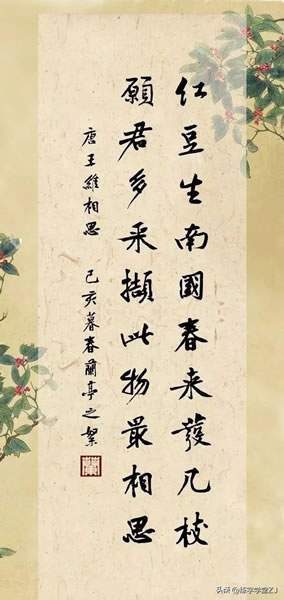 红豆生南國春来發几枝
願君多采擷此物最相思
唐王維相思 己亥暮春蘭亭之
头条 @字学堂ZJ